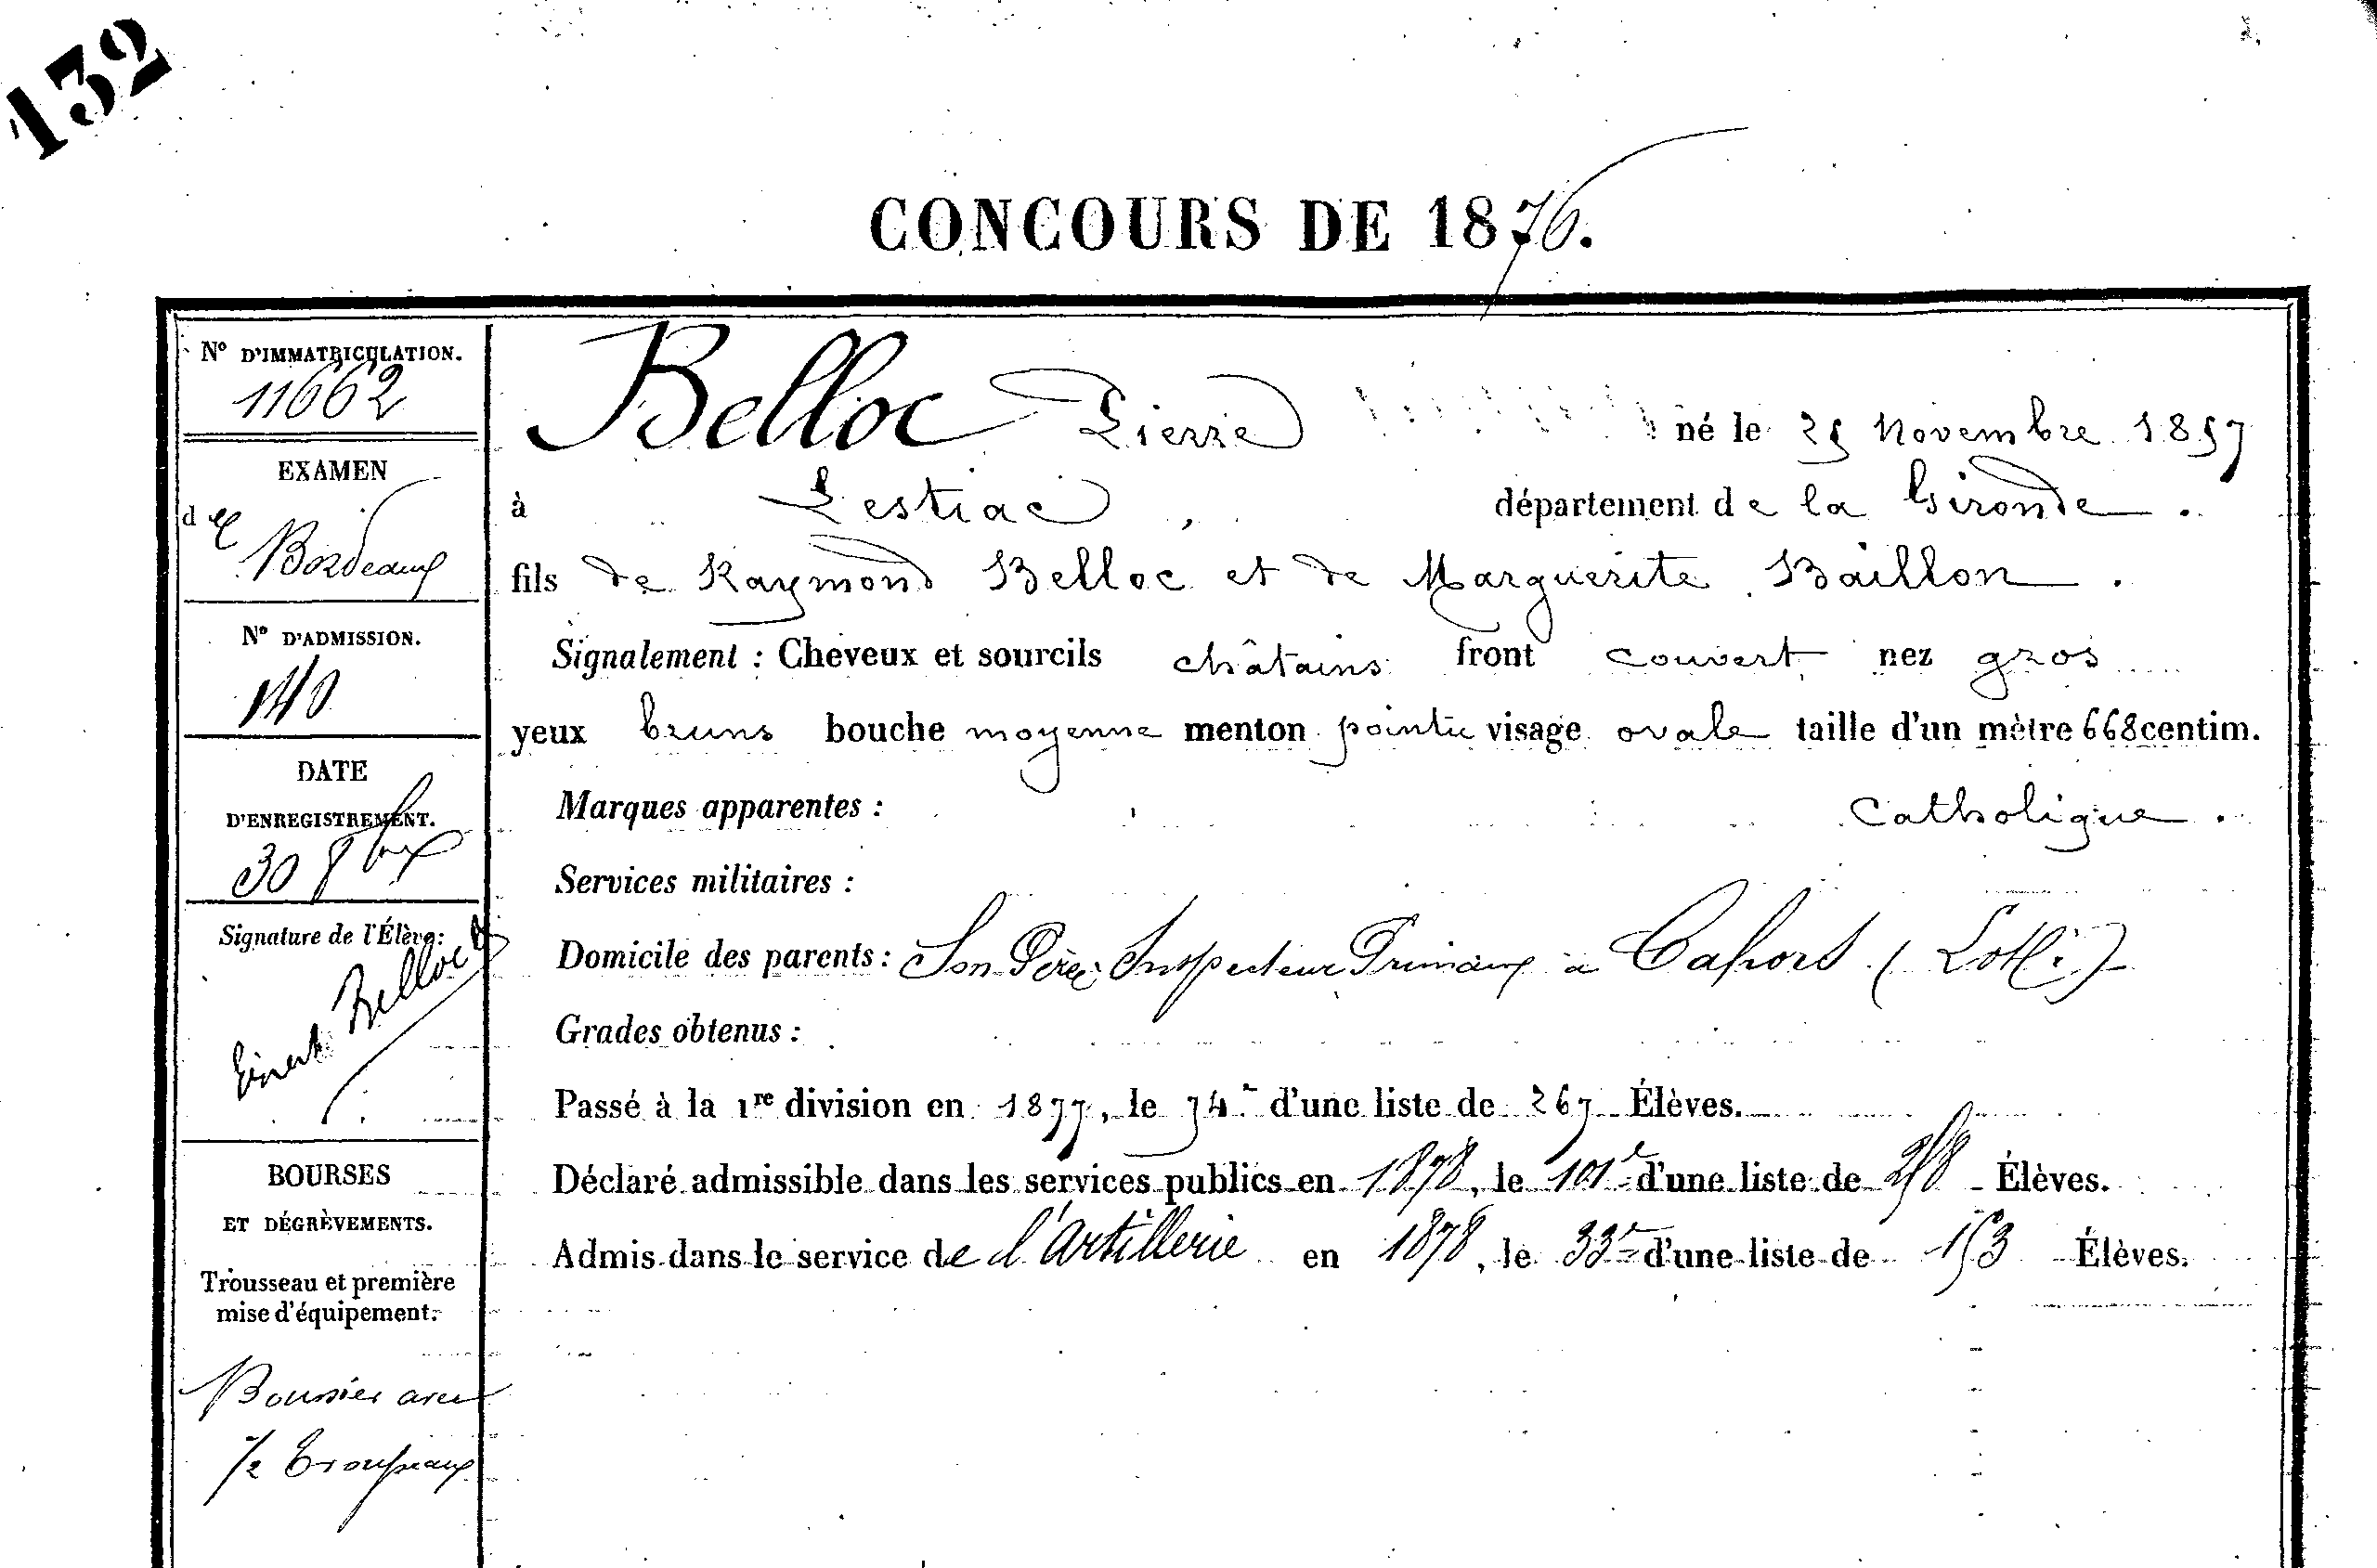 132
CONCOURS DE 1876.
N° D'IMMATRICULATION.
11662
EXAMEN
de
Bordeaux
N° D'ADMISSION.
140
DATE
D'ENREGISTREMENT.
30 8bre
Signature de l'Élève:
Belloc
BOURSES
ET DÉGRÈVEMENTS.
Trousseau et première
mise d'équipement:
Boursier avec
1/2 Trousseau
Belloc Pierre né le 25 Novembre 1857
à Lestiac, département de la Gironde.
fils de Raymond Belloc et de Marguerite Baillon.
Signalement : Cheveux et sourcils châtains front couvert nez gros
yeux bruns bouche moyenne menton pointu visage ovale taille d'un mètre 668 centim.
Marques apparentes : Catholique.
Services militaires :
Domicile des parents : Son Père Inspecteur Primaire à Cahors (Lot)
Grades obtenus :
Passé à la 1re division en 1877, le 74e d'une liste de 267 Élèves.
Déclaré admissible dans les services publics en 1878, le 101e d'une liste de 258 Élèves.
Admis dans le service de l'Artillerie en 1878, le 33e d'une liste de 153 Élèves.